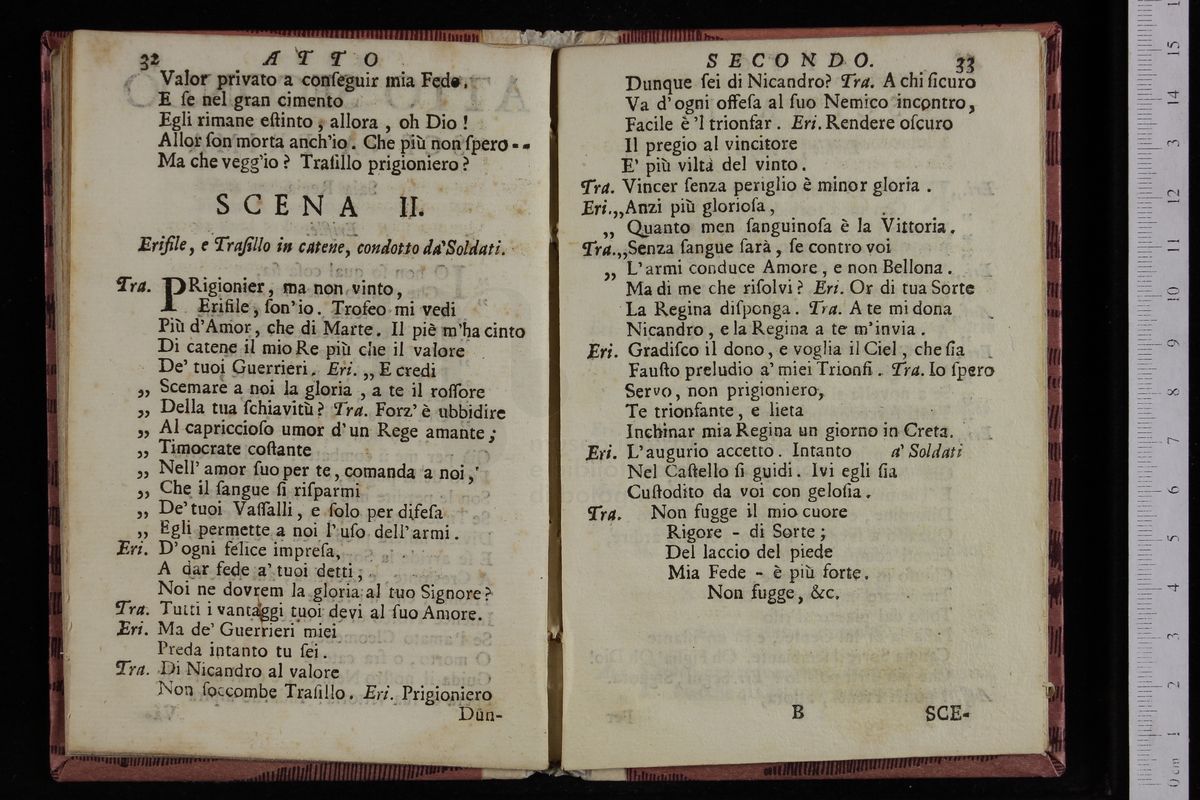 32 ATTO
Valor privato a conſeguir mia Fede.
E ſe nel gran cimento
Egli rimane eſtinto, allora, oh Dio!
Allor ſon morta anch'io. Che più non ſpero--
Ma che vegg'io? Traſillo prigioniero?
SCENA II.
Erifile, e Traſillo in catene, condotto da' Soldati.
Tra. PRigionier, ma non vinto,
Erifile, ſon'io. Trofeo mi vedi
Più d'Amor, che di Marte. Il piè m'ha cinto
Di catene il mio Re più che il valore
De' tuoi Guerrieri. Eri. „ E credi
„ Scemare a noi la gloria, a te il roſſore
„ Della tua ſchiavitù? Tra. Forz' è ubbidire
„ Al capriccioſo umor d'un Rege amante;
„ Timocrate coſtante
„ Nell' amor ſuo per te, comanda a noi,
„ Che il ſangue ſi riſparmi
„ De' tuoi Vaſſalli, e ſolo per difeſa
„ Egli permette a noi l' uſo dell' armi.
Eri. D' ogni felice impreſa,
A dar fede a' tuoi detti,
Noi ne dovrem la gloria al tuo Signore?
Tra. Tutti i vantaggi tuoi devi al ſuo Amore.
Eri. Ma de' Guerrieri miei
Preda intanto tu ſei.
Tra. Di Nicandro al valore
Non ſoccombe Traſillo. Eri. Prigioniero
Dun-
SECONDO. 33
Dunque ſei di Nicandro? Tra. A chi ſicuro
Va d' ogni offeſa al ſuo Nemico incontro,
Facile è 'l trionfar. Eri. Rendere oſcuro
Il pregio al vincitore
E' più viltà del vinto.
Tra. Vincer ſenza periglio è minor gloria.
Eri.„Anzi più glorioſa,
„ Quanto men ſanguinoſa è la Vittoria.
Tra.„Senza ſangue ſarà, ſe contro voi
„ L' armi conduce Amore, e non Bellona.
Ma di me che riſolvi? Eri. Or di tua Sorte
La Regina diſponga. Tra. A te mi dona
Nicandro, e la Regina a te m' invia.
Eri. Gradiſco il dono, e voglia il Ciel, che ſia
Fauſto preludio a' miei Trionfi. Tra. Io ſpero
Servo, non prigioniero,
Te trionfante, e lieta
Inchinar mia Regina un giorno in Creta.
Eri. L' augurio accetto. Intanto a' Soldati
Nel Caſtello ſi guidi. Ivi egli ſia
Cuſtodito da voi con geloſia.
Tra. Non fugge il mio cuore
Rigore - di Sorte;
Del laccio del piede
Mia Fede - è più forte.
Non fugge, &c.
B SCE-
0 cm 1 2 3 4 5 6 7 8 9 10 11 12 13 14 15